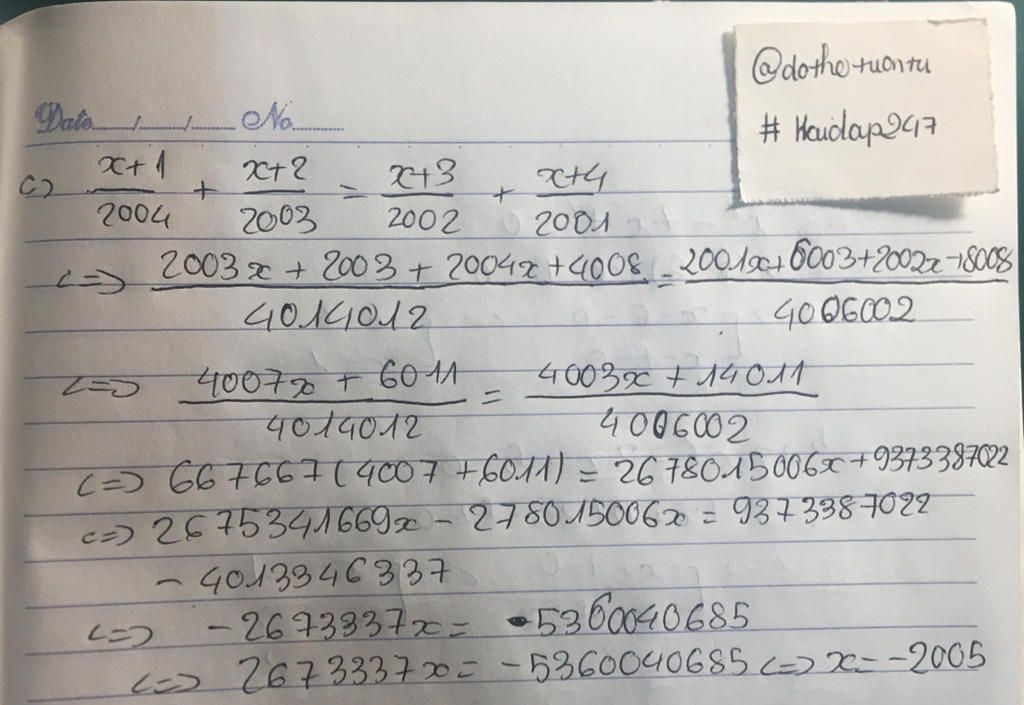 @dothetuantu
# Hoidap247
Date....../....../...... No..........
c) \frac{x+1}{2004} + \frac{x+2}{2003} = \frac{x+3}{2002} + \frac{x+4}{2001}
<=> \frac{2003x + 2003 + 2004x + 4008}{4014012} = \frac{2001x + 6003 + 2002x + 8008}{4006002}
<=> \frac{4007x + 6011}{4014012} = \frac{4003x + 14011}{4006002}
<=> 667667(4007 + 6011) = 2678015006x + 9373387022
<=> 2675341669x - 278015006x = 9373387022
- 4013346337
<=> -2673337x = 5360040685
<=> 2673337x = -5360040685 <=> x = -2005